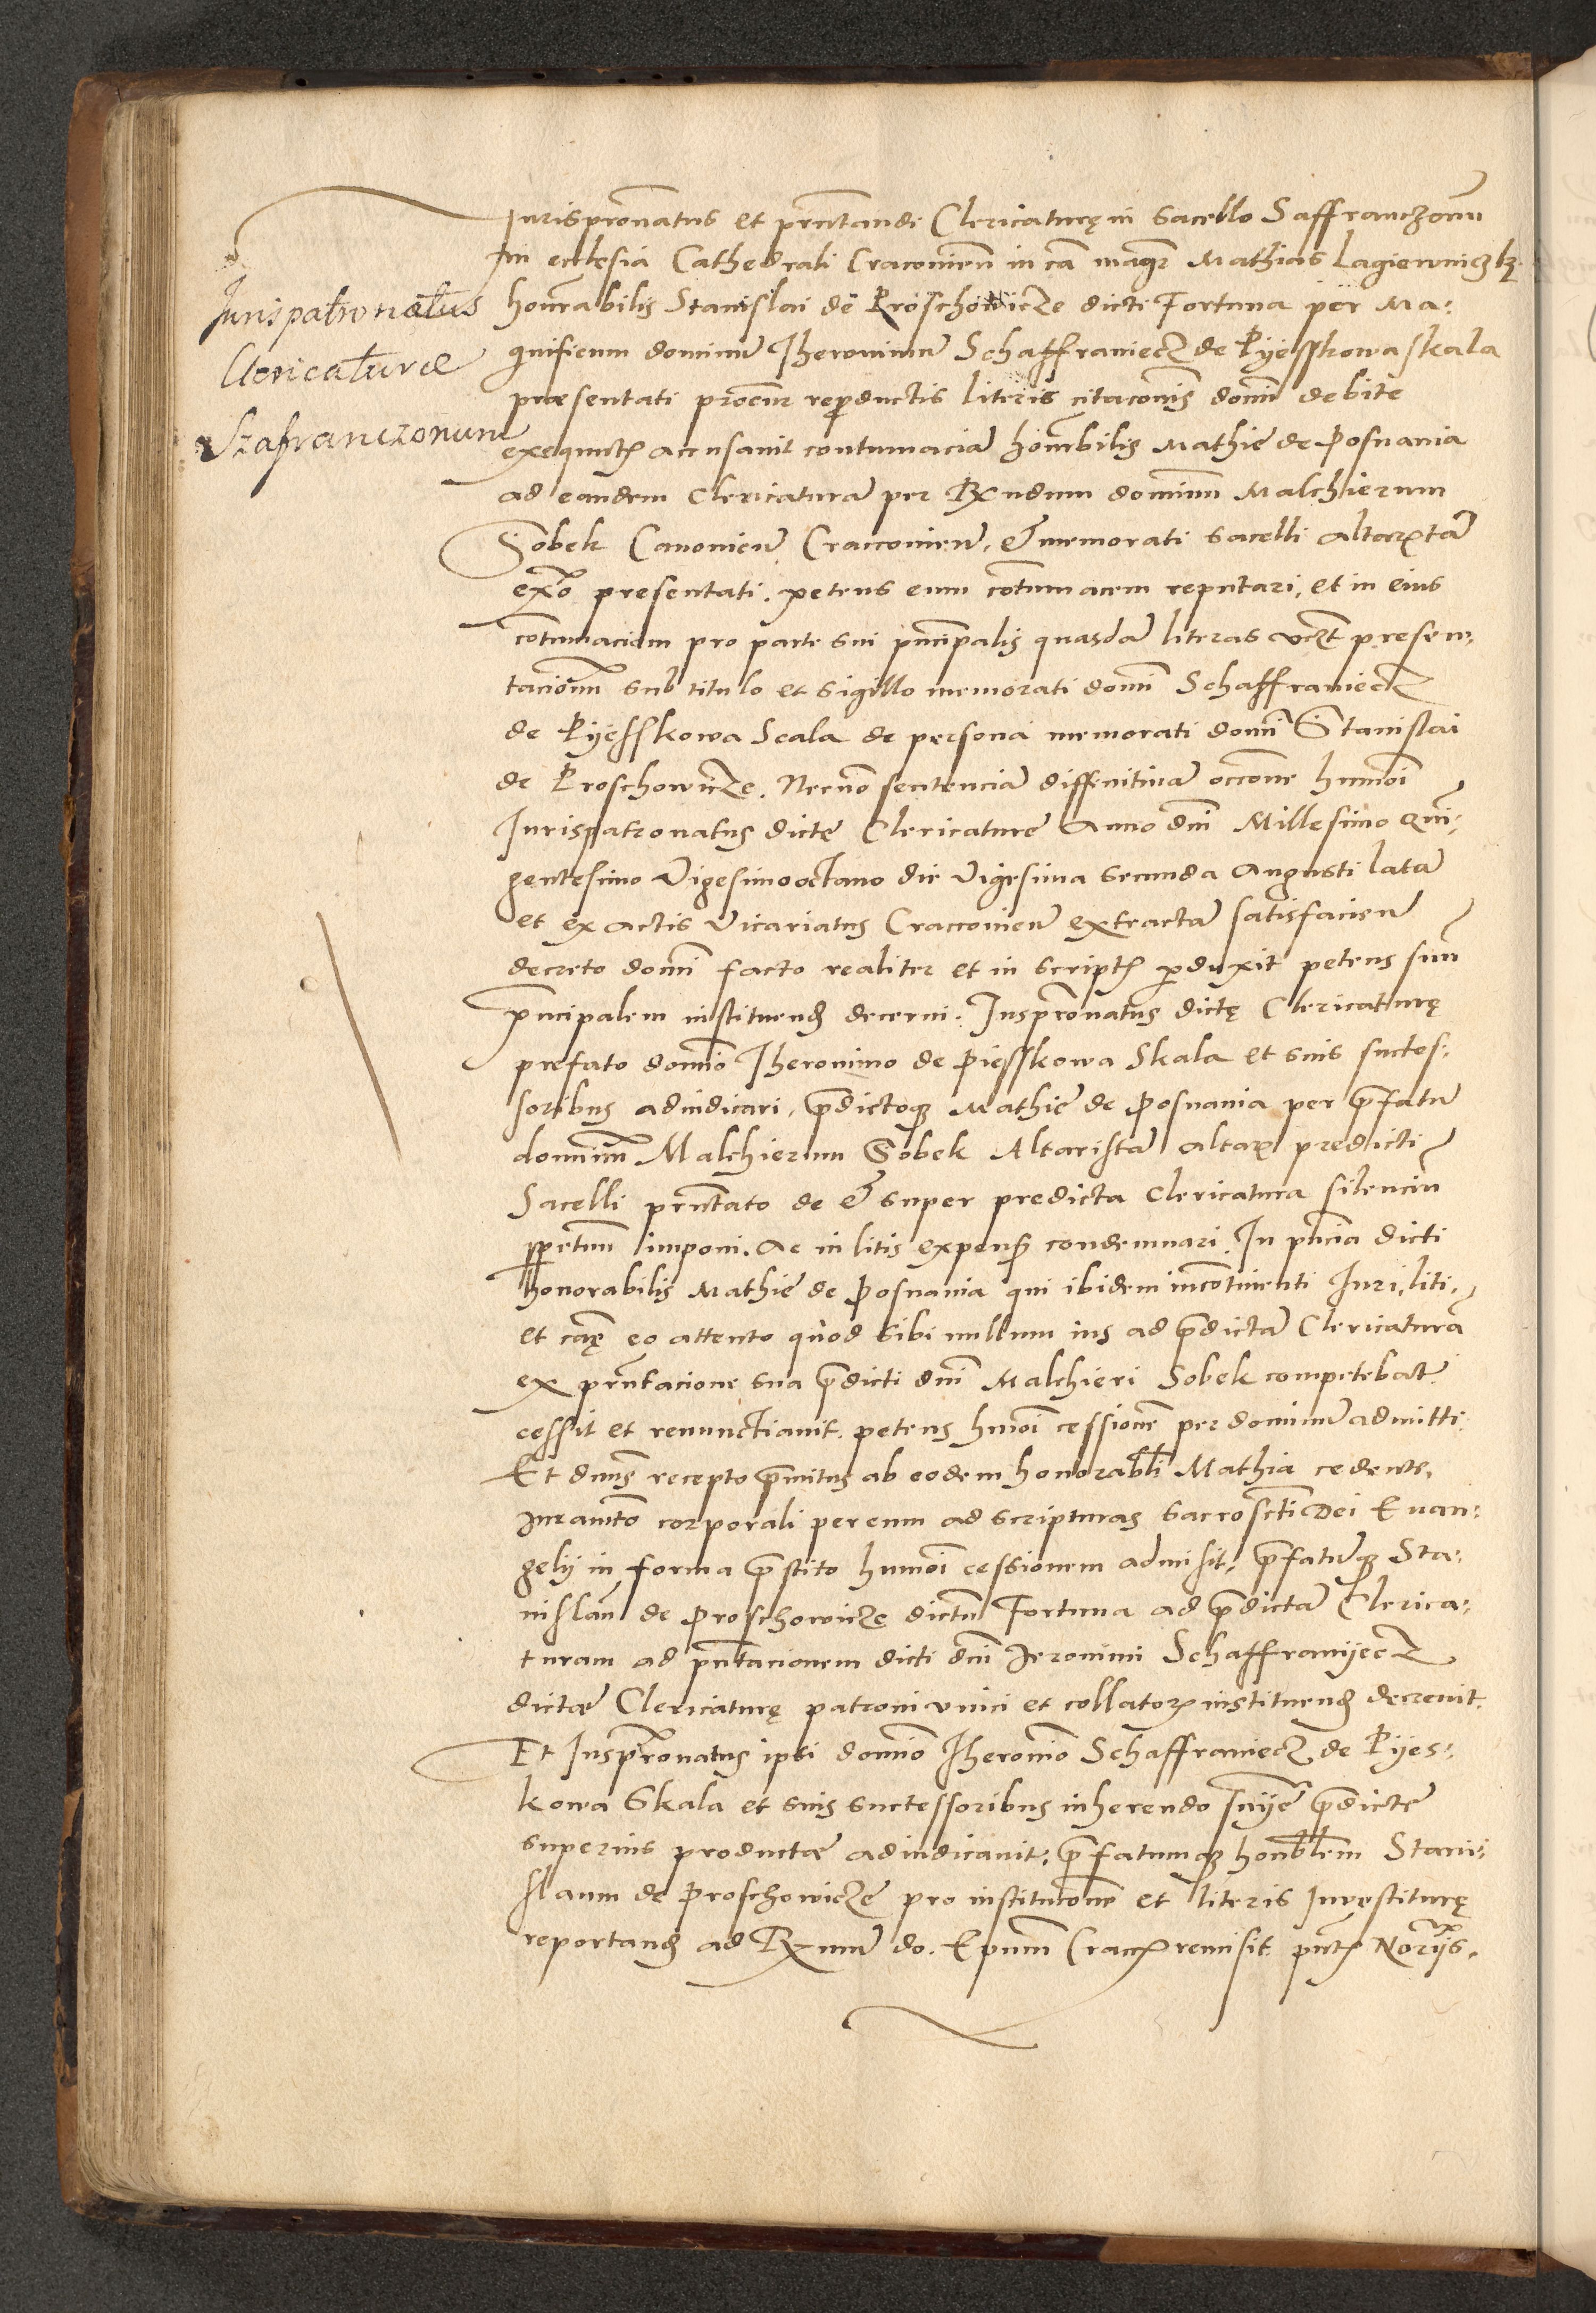 Jurispatronatus
Clericaturæ
Szafranczonum
Jurisprõnatus et pñtandi Clericaturę in Sacello Saffranczonũ
in ecclesia Cathedrali Cracovieñ in cã Mathias Lagiewniczky
honorabilis Stanislai de Proschowicze dicti Fortuna per Ma-
gnificum dominũ Jheronimũ Schaffraniecz de Pyesskowa skala
præsentati procur reproductis literis citacõnis domi debite
accusavit contumaciã honorabilis Mathie de Posnania
ad eandem Clericaturã per Rẽvndum dominum Malchierum
Sobek Canonicũ Cracovieñ. et memorati Sacelli Altaristã
presentati. petens eum contumacem reputari, et in eius
contumaciam pro parte sui principalis quasdã literas presen-
tacionum sub titulo et sigillo memorati domi Schaffraniecz
de Pyesskowa Scala de persona memorati domi Stanislai
de Proschowicze. Necnõ sentenciã diffinitivã occõne hmõi
Jurispatronatus dicte Clericature Anno dni Millesimo Quin-
gentesimo Vigesimooctavo die Vigesima secunda Augusti latã
et ex actis Vicariatus Cracovieñ extractã satisfacieñ
decreto domi facto realiter et in scriptis produxit petens suũ
principalem instituend decerni. Jusprõnatus dictę Clericaturę
prefato domino Jheronimo de Piesskowa Skala et suis succes-
soribus adiudicari, prædictoque Mathie de Posnania per præfatũ
dominum Malchierum Sobek Altaristã altaris predicti
Sacelli pñtato de et super predicta Clericatura silenciũ
perpetuum imponi. Ac in litis expensis condemnari. In pñcia dicti
honorabilis Mathie de Posnania qui ibidem incõtinenti Juri, liti,
et causę eo attento quod sibi nullum ius ad prædictã Clericaturã
ex pñtacione sua prædicti dni Malchieri Sobek competebat
cessit et renunctiavit. petens hmõi cessionẽ per dominũ admitti.
Et dominus recepto primitus ab eodem honorabli Mathia cedente,
juramẽto corporali per eum ad scripturas sacrosctī Dei Evan-
gelij in forma præstito hmõi cessionem admisit, præfatũque Sta-
nislaũ de Proschowicze dictũ Fortuna ad prædictã Clerica-
turam ad pñtacionem dicti dni Jeronimi Schaffranyecz
dictæ Clericaturę patroni unici et collatoris instituend decrevit.
Et Jusprõnatus ipsi domino Jheronimo Schaffraniecz de Pyes-
kowa Skala et suis successoribus inherendo snĩe prædicte
superius productæ adiudicavit, præfatumque honorablem Stani-
slaum de Proschowicze pro institucõne et literis Investiturę
reportand ad Rẽvmũ do. Epum Cracovi remisit pñtibus Notariis.